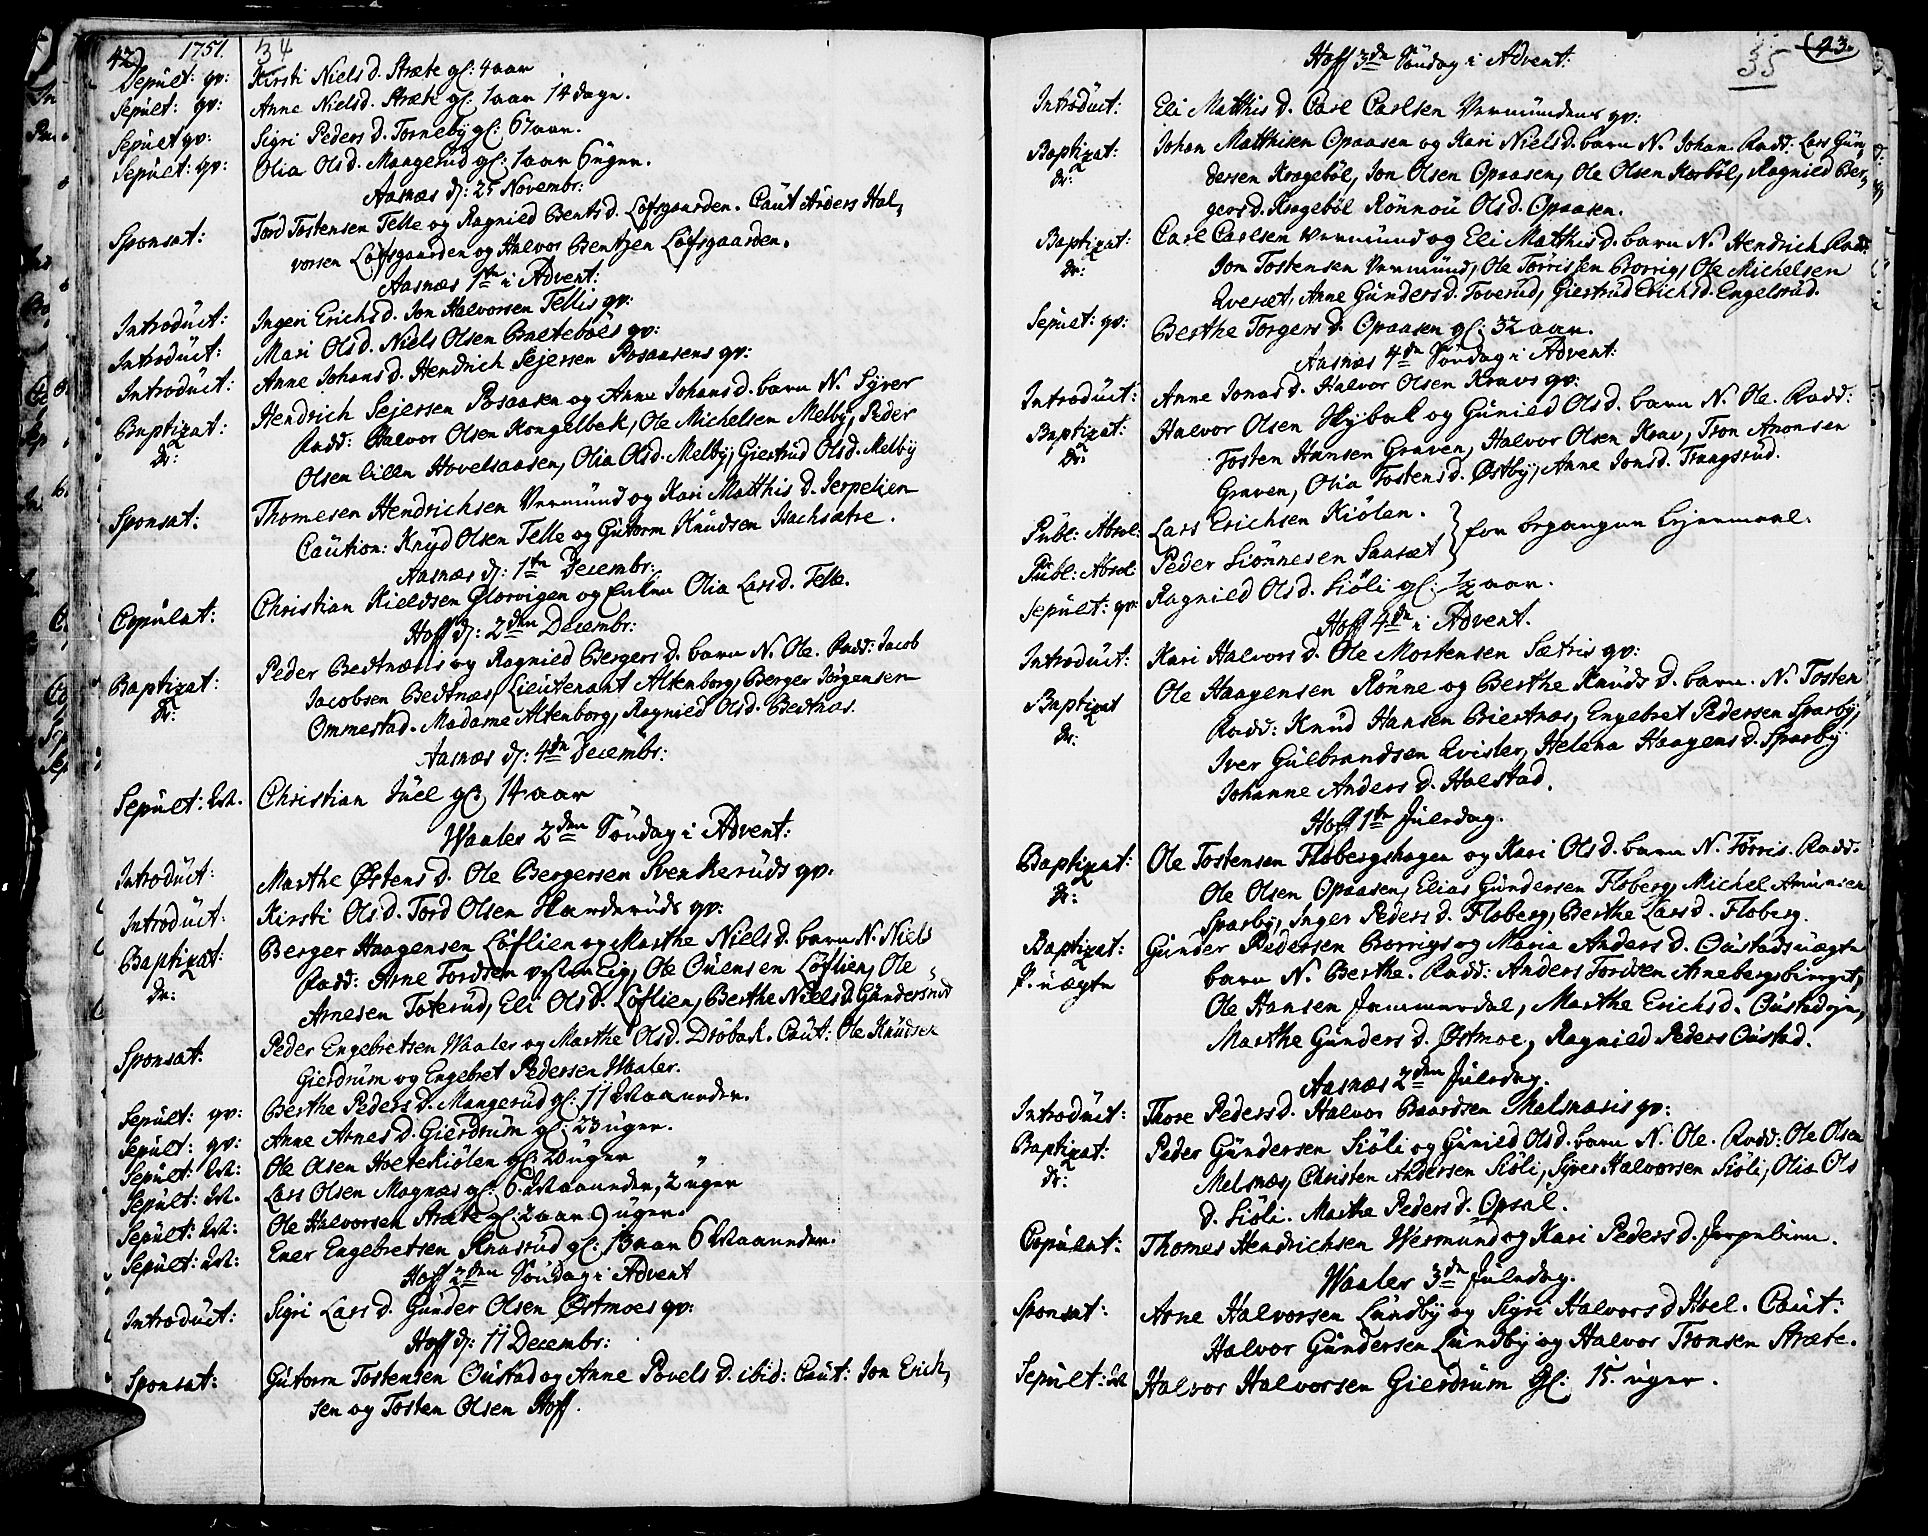 42) 1751. 34
Sepult: qv: Kirsti Niels d. Stræte gl: 4 aar
Sepult: qv: Anne Nielsd. Stræte gl: 1 aar 14 dage.
Sepult qv: Sigri Peders d. Torneby gl: 67 aar.
Sepult: qv: Olia Olsd. Mangerud gl: 1 aar 6 uger.
Aasnæs d: 25 Novembr:
Sponsat: Tord Tostensen Telle og Ragnild Bentsd. Løfsgaarden. Caut Arders Hal,
vorsen Løfsgaarden og Halvor Bentzen Løfsgaarden.
Aasnæs 1te i Advent:
Introduct: Ingeri Erichsd. Jon Halvorsen Tellis qv:
Introduct: Mari Olsd. Niels Olsen Brateböls qv:
Introduct: Anne Johansd. Hendrich Sejersen Posaasens qv:
Baptizat: Hendrich Sejersen Posaasen og Anne Johans d. barn N. Syver
dr: Fadd: Halvor Olsen Kongelbek, Ole Michelsen Melby, Peder
Olsen lillen Hovelsaasen, Olia Olsd. Melby, Giertrud Olsd. Melby
Sponsat: Thomesen Hendrichsen Vermund og Kari Matthis d. Jerpelien
Caution: Knud Olsen Telle og Gutorm Knudsen Hachsætre.
Aasnæs d: 1te Decembr:
Copulat: Christian Kieldsen Glorvigen og Enken Olia Larsd. Telle.
Hoff d: 2den Decembr:
Baptizat: Peder Bedtnæsis og Ragnild Bergers d. barn N. Ole. Fadd: Jacob
dr: Jacobsen Bedtnæs, Lieutenant Altenborg, Berger Jörgensen
Ommestad. Madame Altenborg, Ragnild Olsd. Bedtnæs.
Aasnæs d: 4de Decembr:
Sepult: M. Christian Juel gl: 14 aar
Waaler 2den Söndag i Advent:
Introduct: Marthe Østens d. Ole Bergersen Svenkeruds qv:
Introduct: Kirsti Olsd. Tord Olsen Skanderuds qv:
Baptizat: Berger Haagensen Löflien og Marthe Niels d. barn N. Niels
dr: Fadd: Arne Tordsen Ole Ouensen Löflien, Ole
Arnesen Toterud, Eli Olsd. Löflien, Berthe Niels d. Gündersmoe
Sponsat: Peder Engebretsen Waaler og Marthe Olsd. Dröbak. Caut: Ole Knudsen
Gierdrum og Engebret Pedersen Waaler.
Sepult: qv: Berthe Peders d. Mangerud gl: 11 Maaneder.
Sepult: qv: Anne Arnes d. Gierdrum gl: 23 uger.
Sepult: M: Ole Olsen Holtekiölen gl: 20 uger
Sepult: M. Lars Olsen Magnæs gl: 6 Maaneder, 2 uger
Sepult: M: Ole Halvorsen Stræte gl: 2 aar 9 uger.
Sepult: M: Ener Engebretsen Knasrud gl: 13 aar 6 Maaneder.
Hoff 2den Söndag i Advent
Introduct: Sigri Lars d. Gunder Olsen Østmoes qv:
Hoff d: 11 Decembr:
Sponsat: Gutorm Tostensen Oustad og Anne Povels d. ibid: Caut: Jon Erich,
sen og Tosten Olsen Hoff.
35 (43.
Hoff 3de Söndag i Advent:
Introduct: Eli Matthis d. Carl Carlsen Vermundens qv:
Baptizat: Johan Matthisen Opaasen og Kari Nielsd. barn N. Johan. Fadd: Lars Gun,
dr: dersen Kragebøl, Jon Olsen Opaasen, Ole Olsen Korböl, Ragnild Ber,
gersd. Kragebøl Rönnou Olsd. Opaasen.
Baptizat: Carl Carlsen Vermund og Eli Matthisd. barn N. Hendrich Fadd:
dr: Jon Tostensen Vermund, Ole Törrissen Borrig, Ole Michelsen
Qveset, Anne Gunders d. Toverud, Giertrud Erichsd. Engelsrud.
Sepult: qv: Berthe Torgers d. Opaasen gl: 32 aar.
Aasnæs 4de Söndag i Advent:
Introduct: Anne Jonas d. Halvor Olsen Kravs qv:
Baptizat: Halvor Olsen Skybak og Gunild Olsd. barn N. Ole. Fadd:
dr: Tosten Hansen Graven, Halvor Olsen Krav, Tron Amonsen
Graven, Olia Tostens d. Østby, Anne Jonsd. Trangsrud.
Publ: Absol: Lars Erichsen Kiölen. } for begangen Lejermaal.
Publ: Absol: Peder Siönnesen Saaset
Sepult: qv: Ragnild Olsd. Siöli gl: 1/2 aar.
Hoff 4de i Advent.
Introduct: Kari Halvors d. Ole Mortensen Sætris qv:
Baptizat Ole Haagensen Rönne og Berthe Knuds d. barn. N. Tosten
dr: Fadd: Knud Hansen Biertnæs, Engebret Pedersen Sparby,
Iver Gulbrandsen Qvisler, Helena Haagens d. Sparby
Johanne Anders d. Halstad.
Hoff 1te Juledag.
Baptizat: Ole Tostensen Flobergshagen og Kari Olsd. barn N. Törris. Fadd.
dr: Ole Olsen Opaasen, Elias Gundersen Floberg, Michel Amunsen
Sparby, Inger Peders d. Floberg, Berthe Lars d. Floberg.
Baptizat: Gunder Pedersen Borrigs og Maria Anders d. Oustads uægte
P. uægte barn N. Berthe. Fadd: Anders Tordsen Arnebergsbirget,
Ole Hansen Jammerdal, Marthe Erichs d. Oustadeje,
Marthe Gunders d. Østmoe, Ragnild Peders Oustad.
Aasnæs 2den Juledag.
Introduct: Thore Pedersd. Halvor Baardsen Melsnæsis qv:
Baptizat: Peder Gundersen Siöli og Gunild Olsd. barn N. Ole. Fadd: Ole Olsen
dr: Melsnæs, Christen Andersen Siöli, Syver Halvorsen Siöli, Olia Ols
d. Siöli. Marthe Peders d. Opsal.
Copulat: Thomes Hendrichsen Wermund og Kari Peders d. Jerpelien.
Waaler 3de Juledag.
Sponsat: Arne Halvorsen Lundby og Sigri Halvors d Hoel. Caut:
Halvor Gundersen Lundby og Halvor Tronsen Stræte.
Sepult: M Halvor Halvorsen Gierdrum gl: 15 uger.